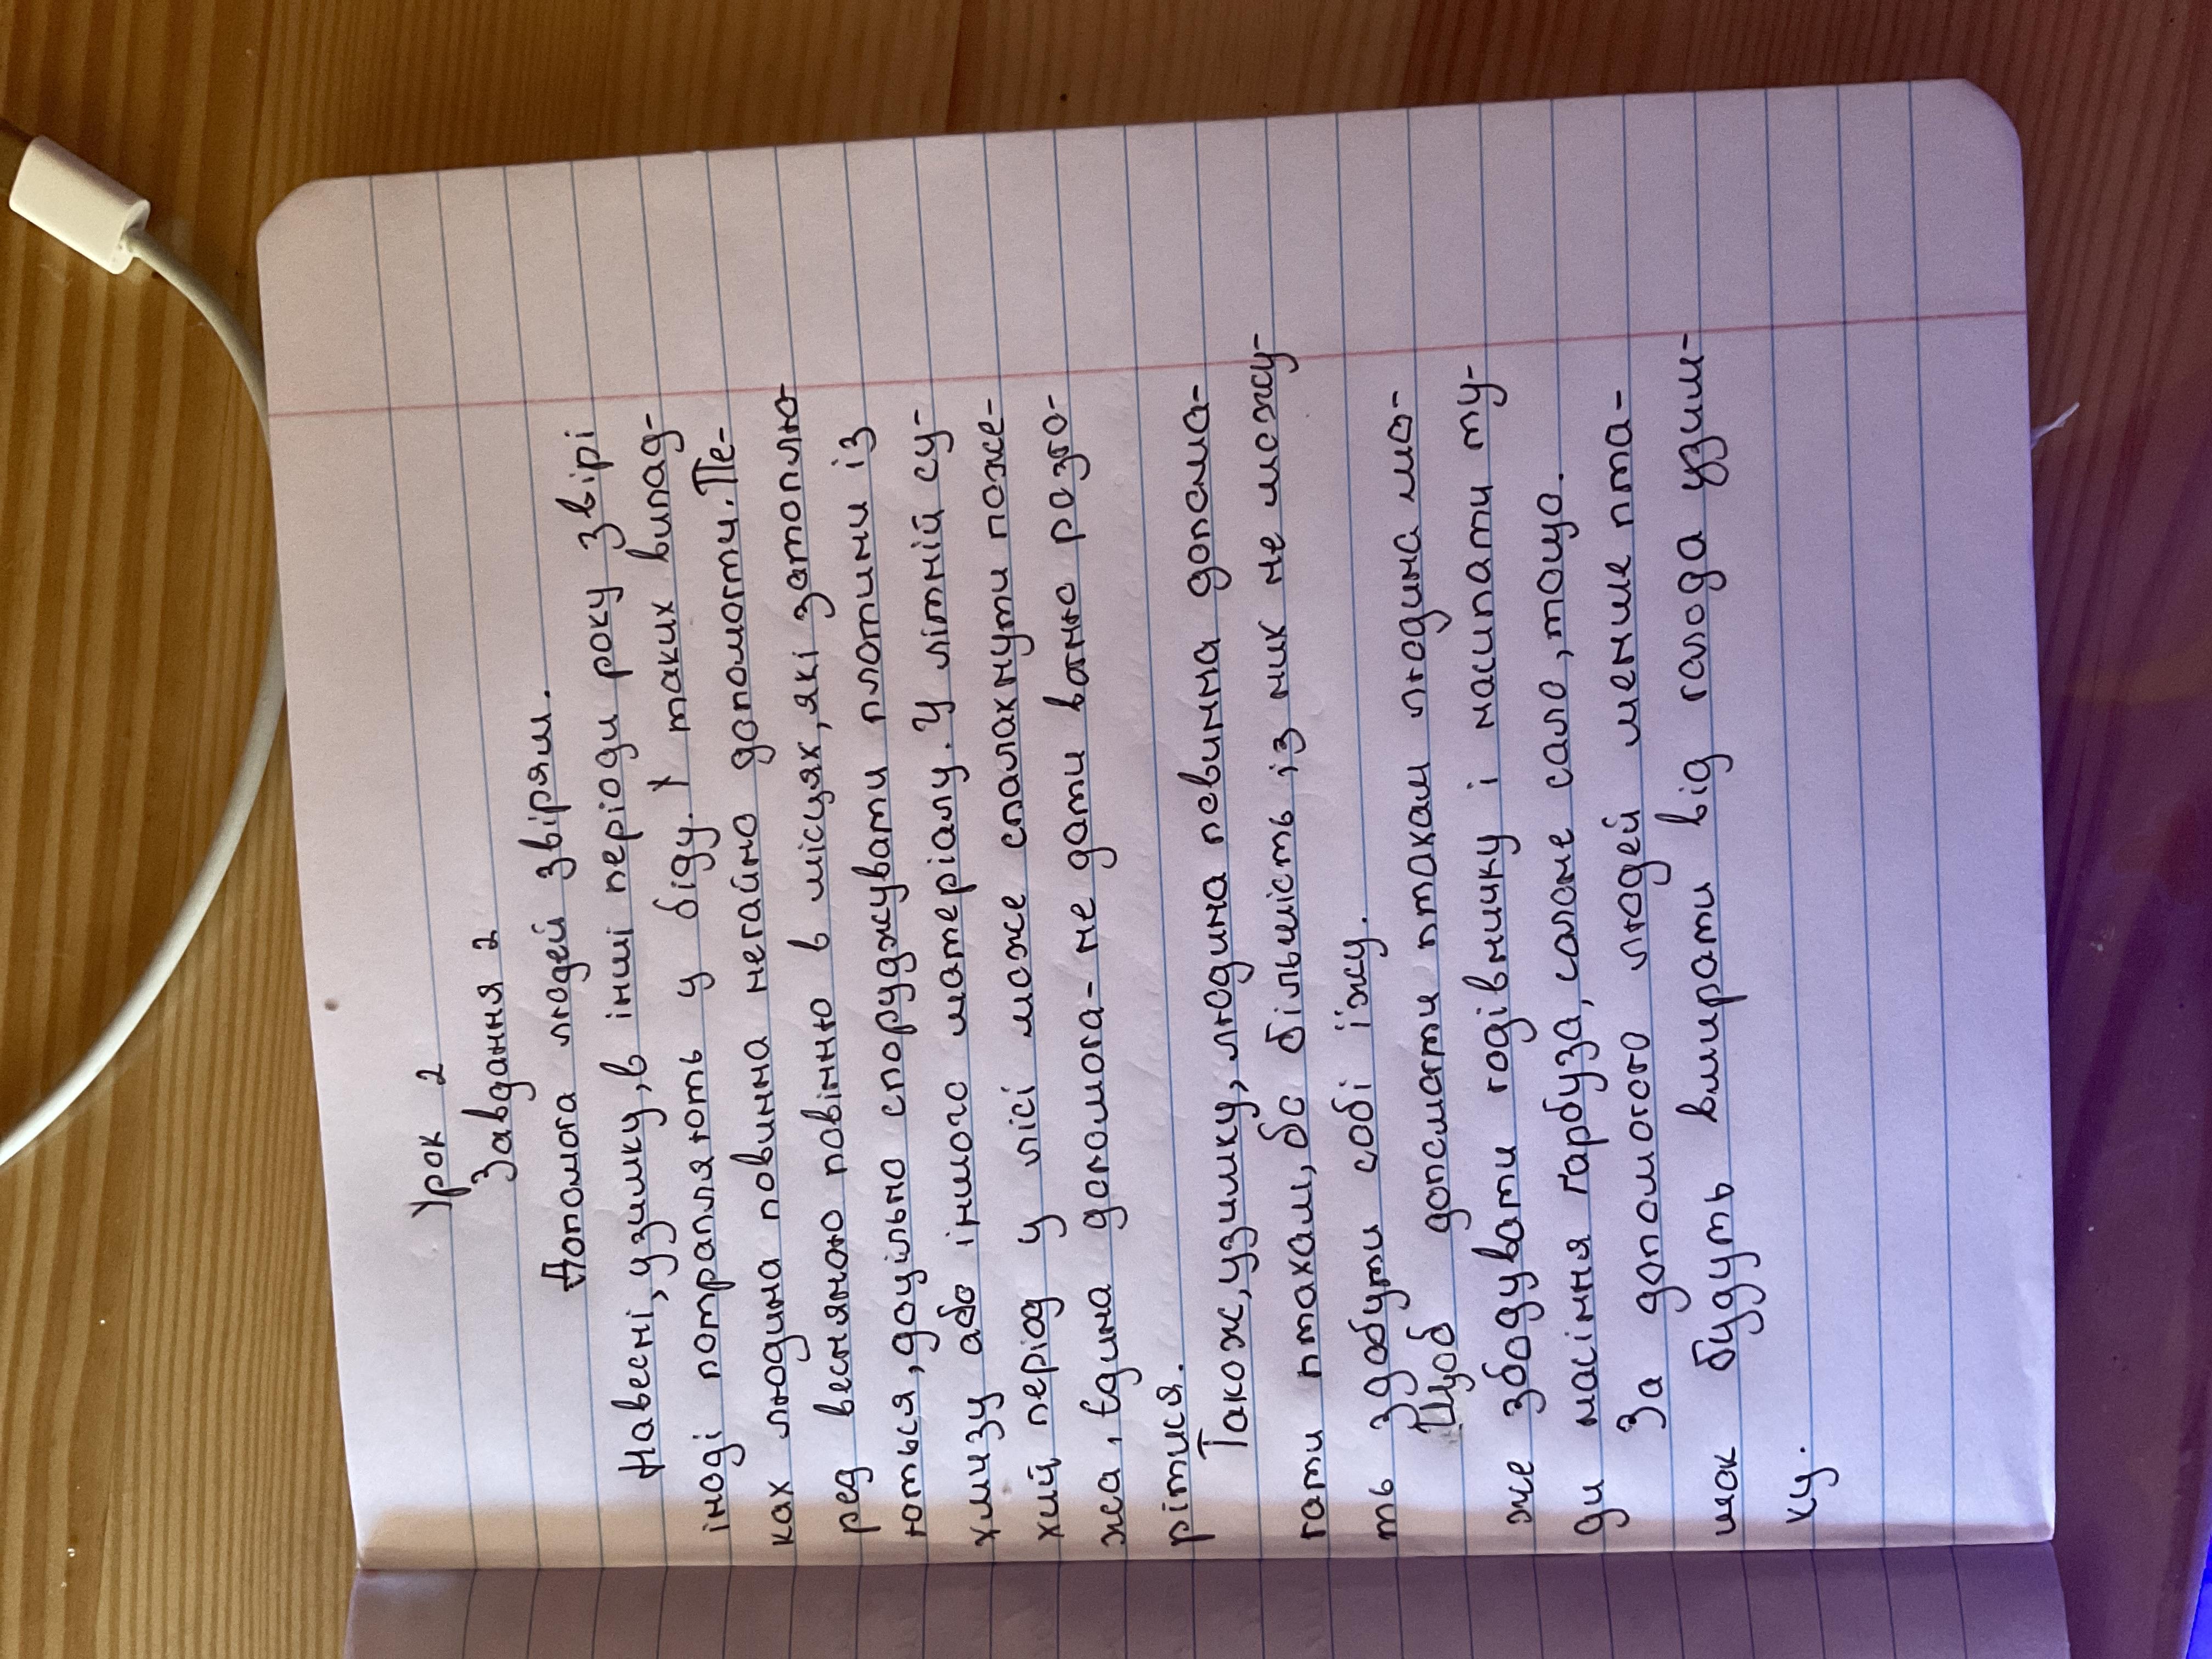 Урок 2
Завдання 2
Допомога людей звірям.
Навесні, узимку, в інші періоди року звірі
іноді потрапляють у біду. У таких випад-
ках людина повинна негайно допомогти. Пе-
ред весняною повінню в місцях, які затоплю-
ються, доцільно споруджувати плотини із
хмизу або іншого матеріалу. У літній су-
хий період у лісі може спалахнути поже-
жа, єдина допомога- не дати вогню розго-
рітися.
Також, узимку, людина повинна допома-
гати птахам, бо більшість із них не можу-
ть здобути собі їжу.
Щоб допомогти птахам людина мо-
же збодувати годівничку і насипати ту-
ди насіння гарбуза, солоне сало, тощо.
За допомогою людей менше пта-
шок будуть вмирати від голода узим-
ку.